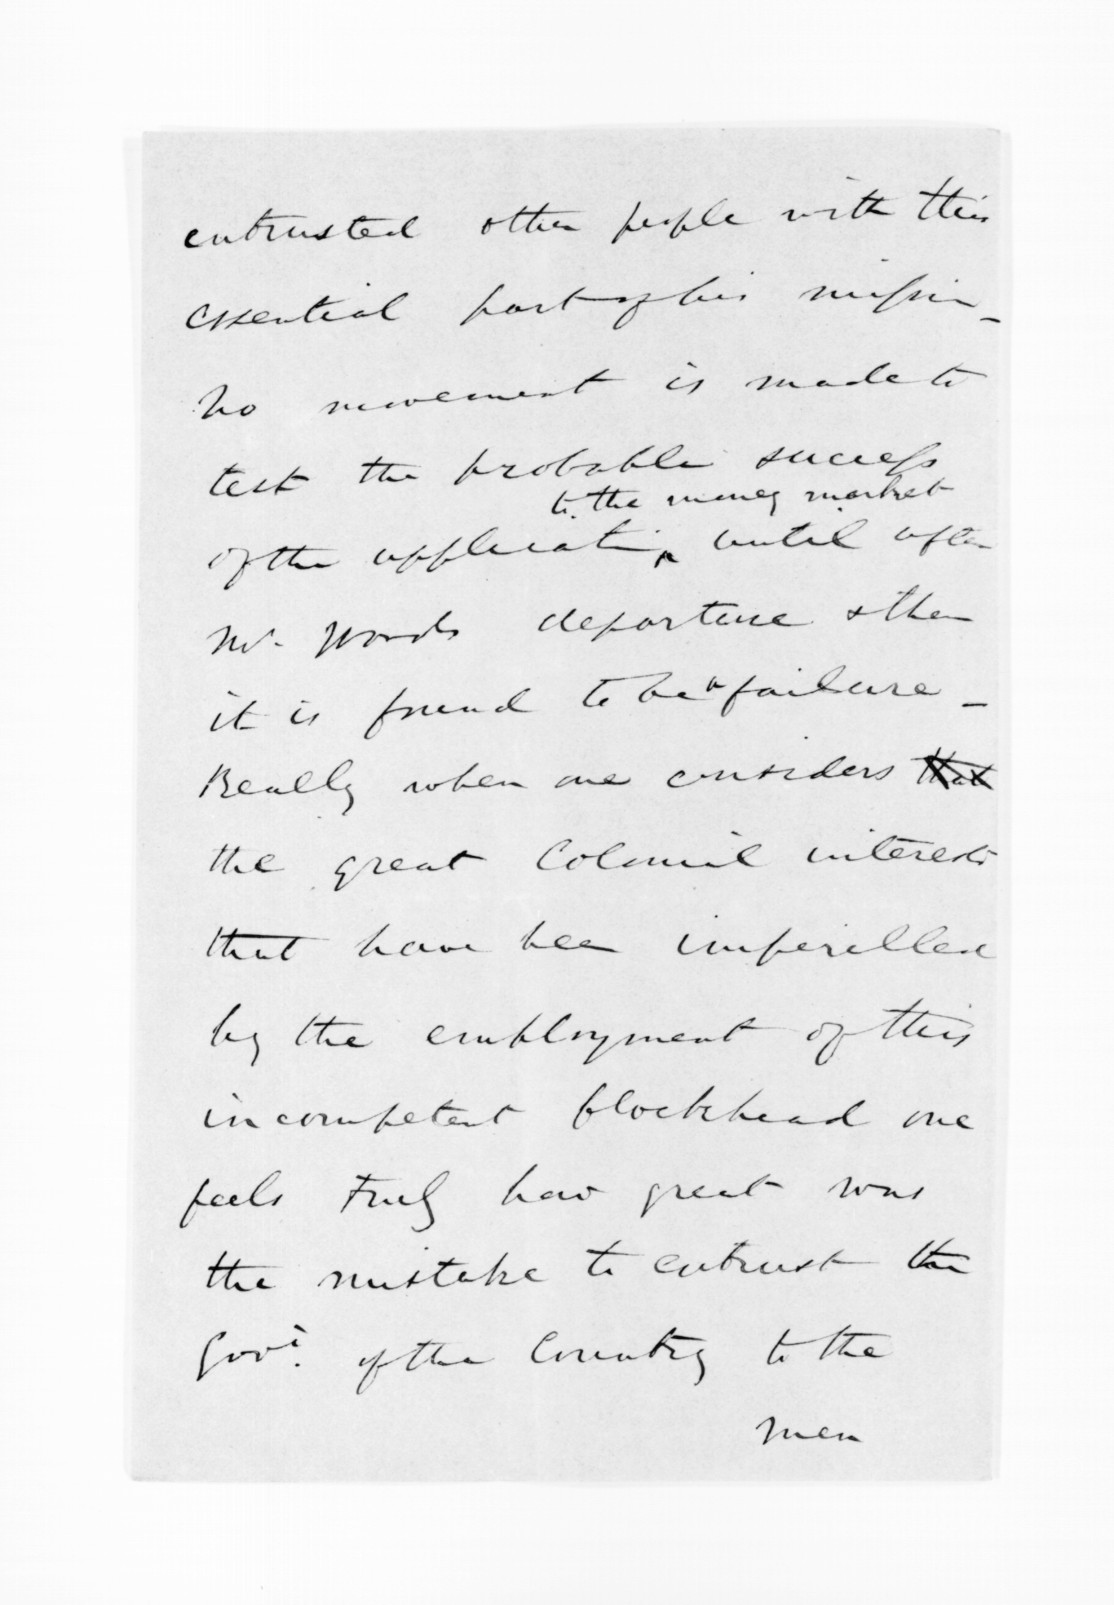 entrusted other people with this
essential part of his mission_
No movement is made to
test the probable success
to the money market
of the application ^ until after
Mr. Wards departure & then
it is found to be a failure _
Really when one considers that
the great Colonial interests
that have been imperilled
by the employment of this
incompetent blockhead one
feels truly how great was
the mistake to entrust the
Govt. of the Country to the
men